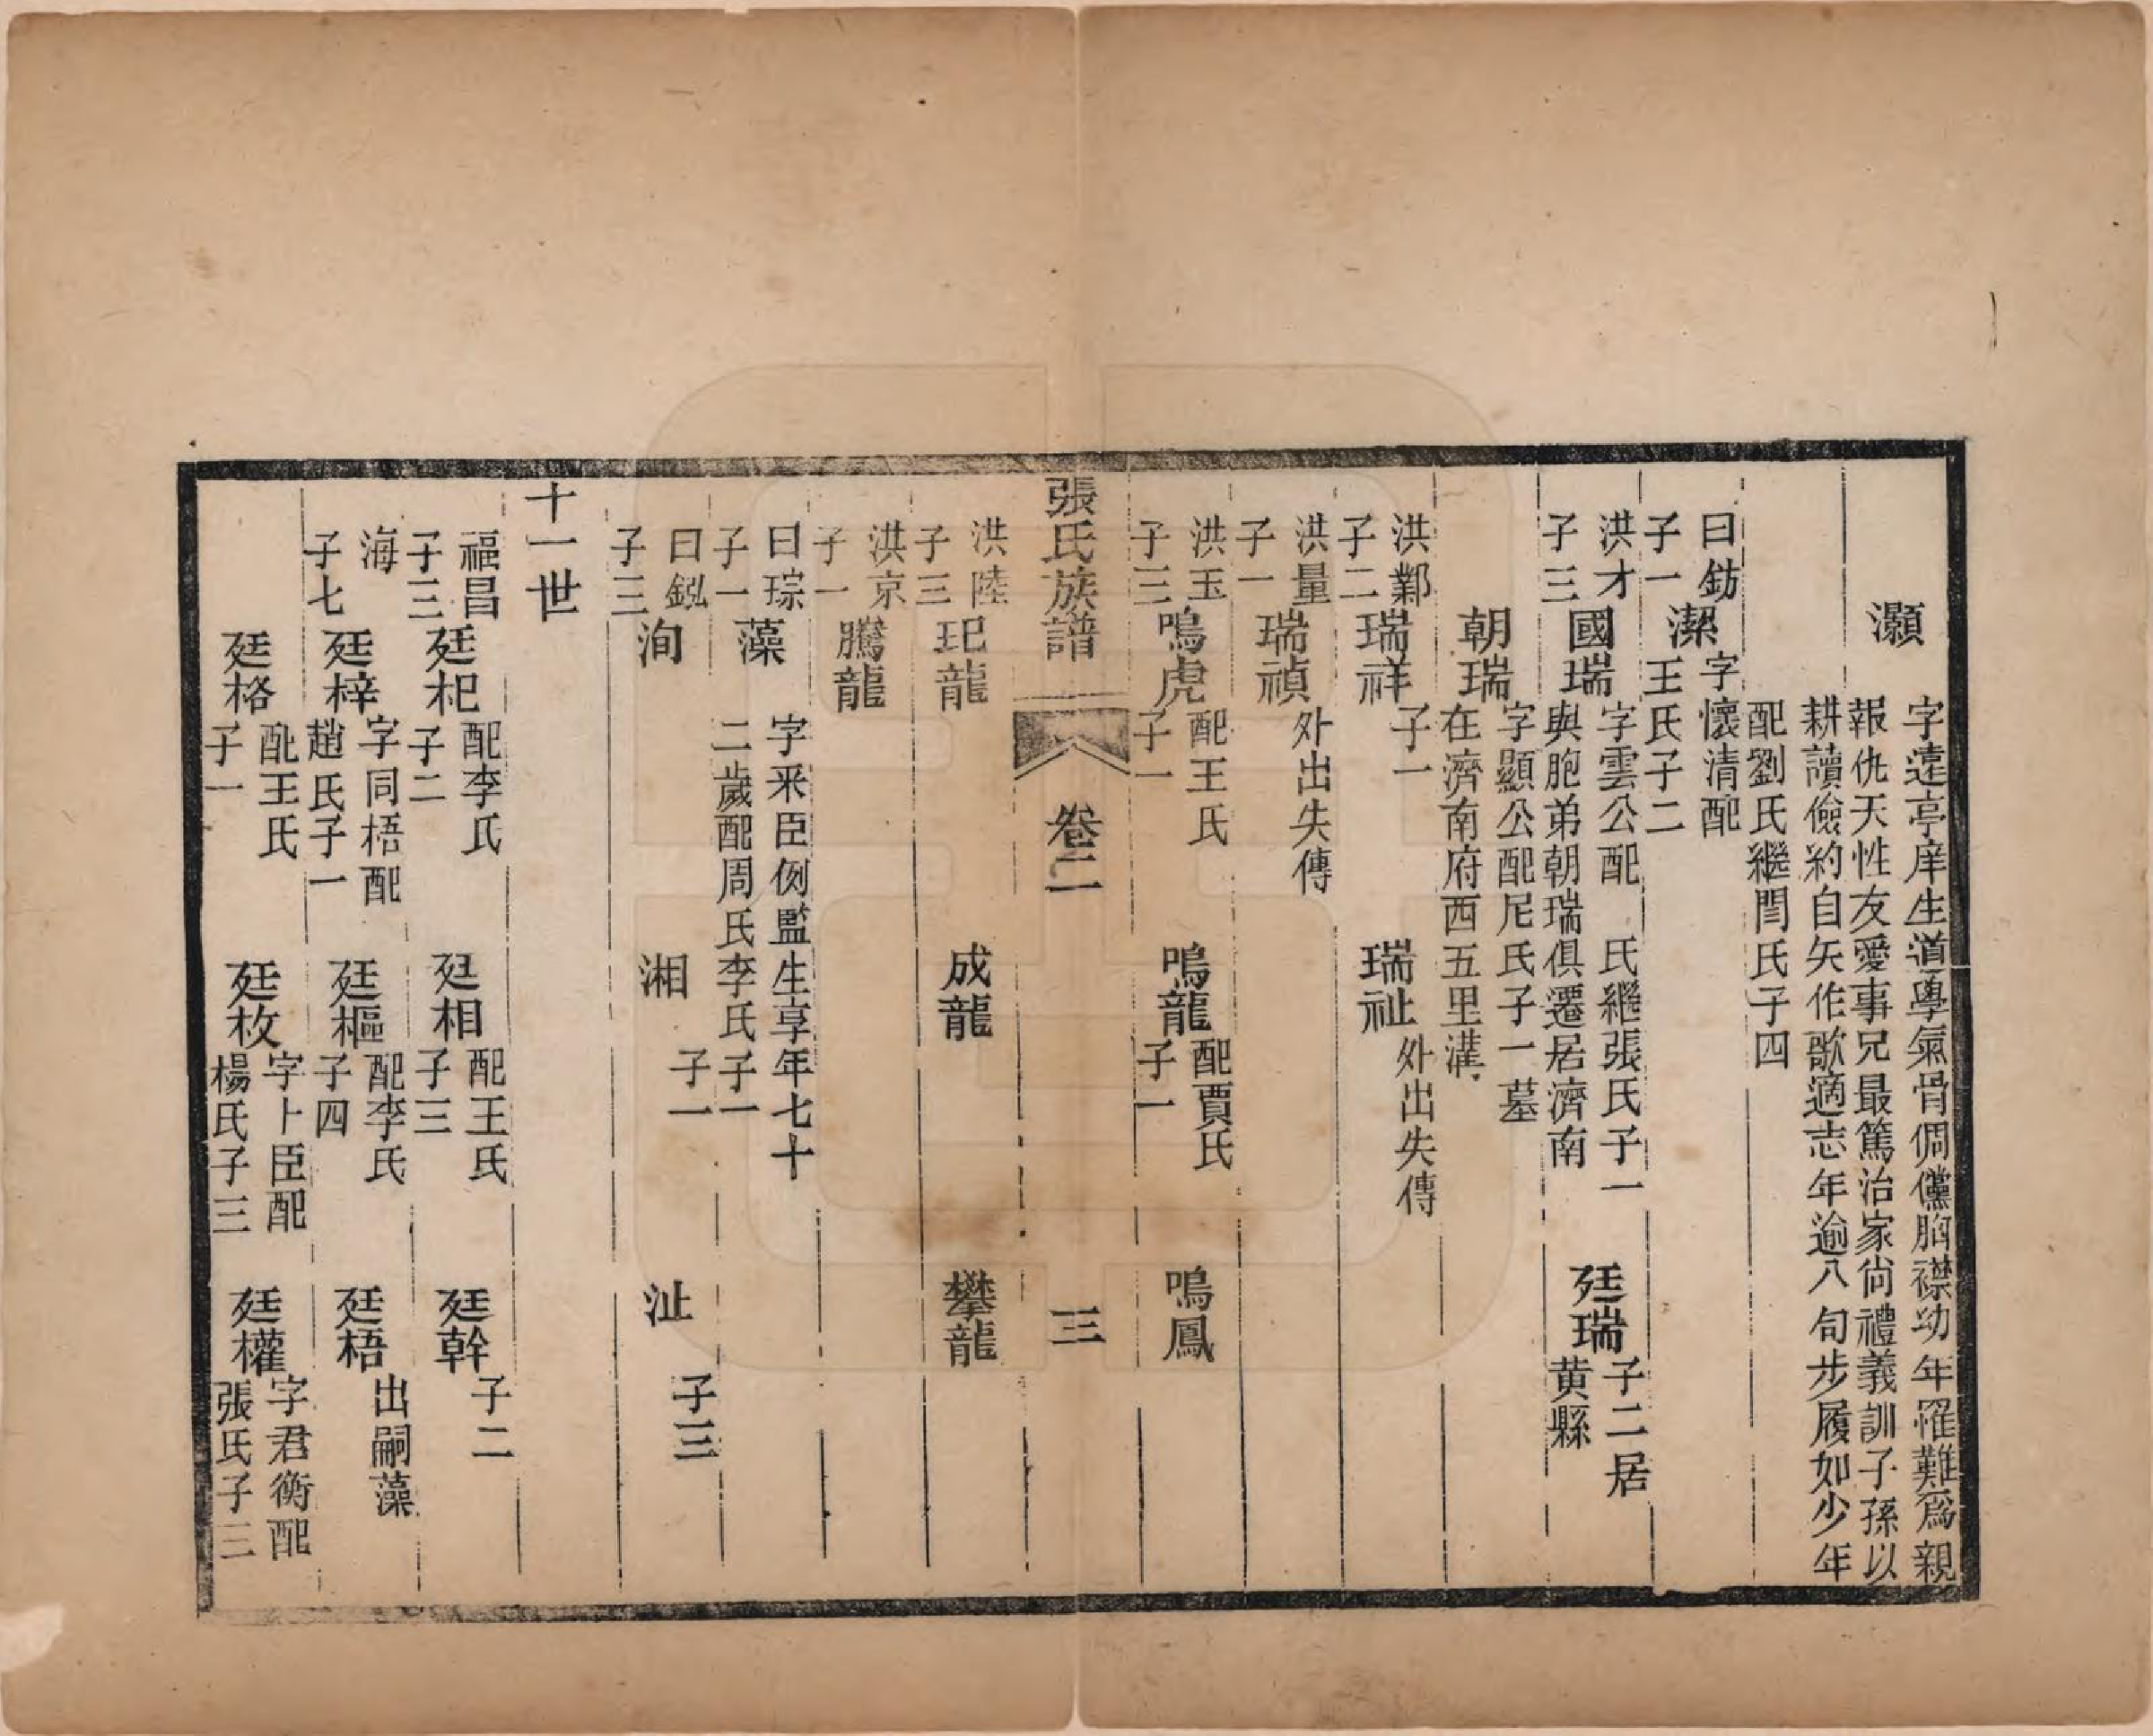 灝
字遠亭庠生道學氣骨倜儻胸襟幼年罹難爲親
報仇天性友愛事兄最篤治家尚禮義訓子孫以
耕讀儉約自矢作歌適志年逾八旬步履如少年
配劉氏繼閆氏子四
曰鈁
子一
潔
字懷清配
王氏子二
洪才
子三
國瑞
字雲公配　氏繼張氏子一
與胞弟朝瑞俱遷居濟南
廷瑞
子二居
黄縣
朝瑞
字顯公配尼氏子一墓
在濟南府西五里溝
洪鄴
子二
瑞祥
子一
瑞祉
外出失傳
洪量
子一
瑞禎
外出失傳
洪玉
子三
鳴虎
配王氏
子一
鳴龍
配賈氏
子一
鳴鳳
張氏族譜
卷二
三
洪陸
子三
玘龍
成龍
攀龍
洪京
子一
騰龍
曰琮
子一
藻
字釆臣例監生享年七十
二歲配周氏李氏子一
曰鈊
子三
洵
湘
子一
沚
子三
十一世
福昌
子三
廷杞
配李氏
子二
廷相
配王氏
子三
廷幹
子二
海
子七
廷梓
字同梧配
趙氏子一
廷樞
配李氏
子四
廷梧
出嗣藻
廷格
配王氏
子一
廷枚
字卜臣配
楊氏子三
廷權
字君衡配
張氏子三